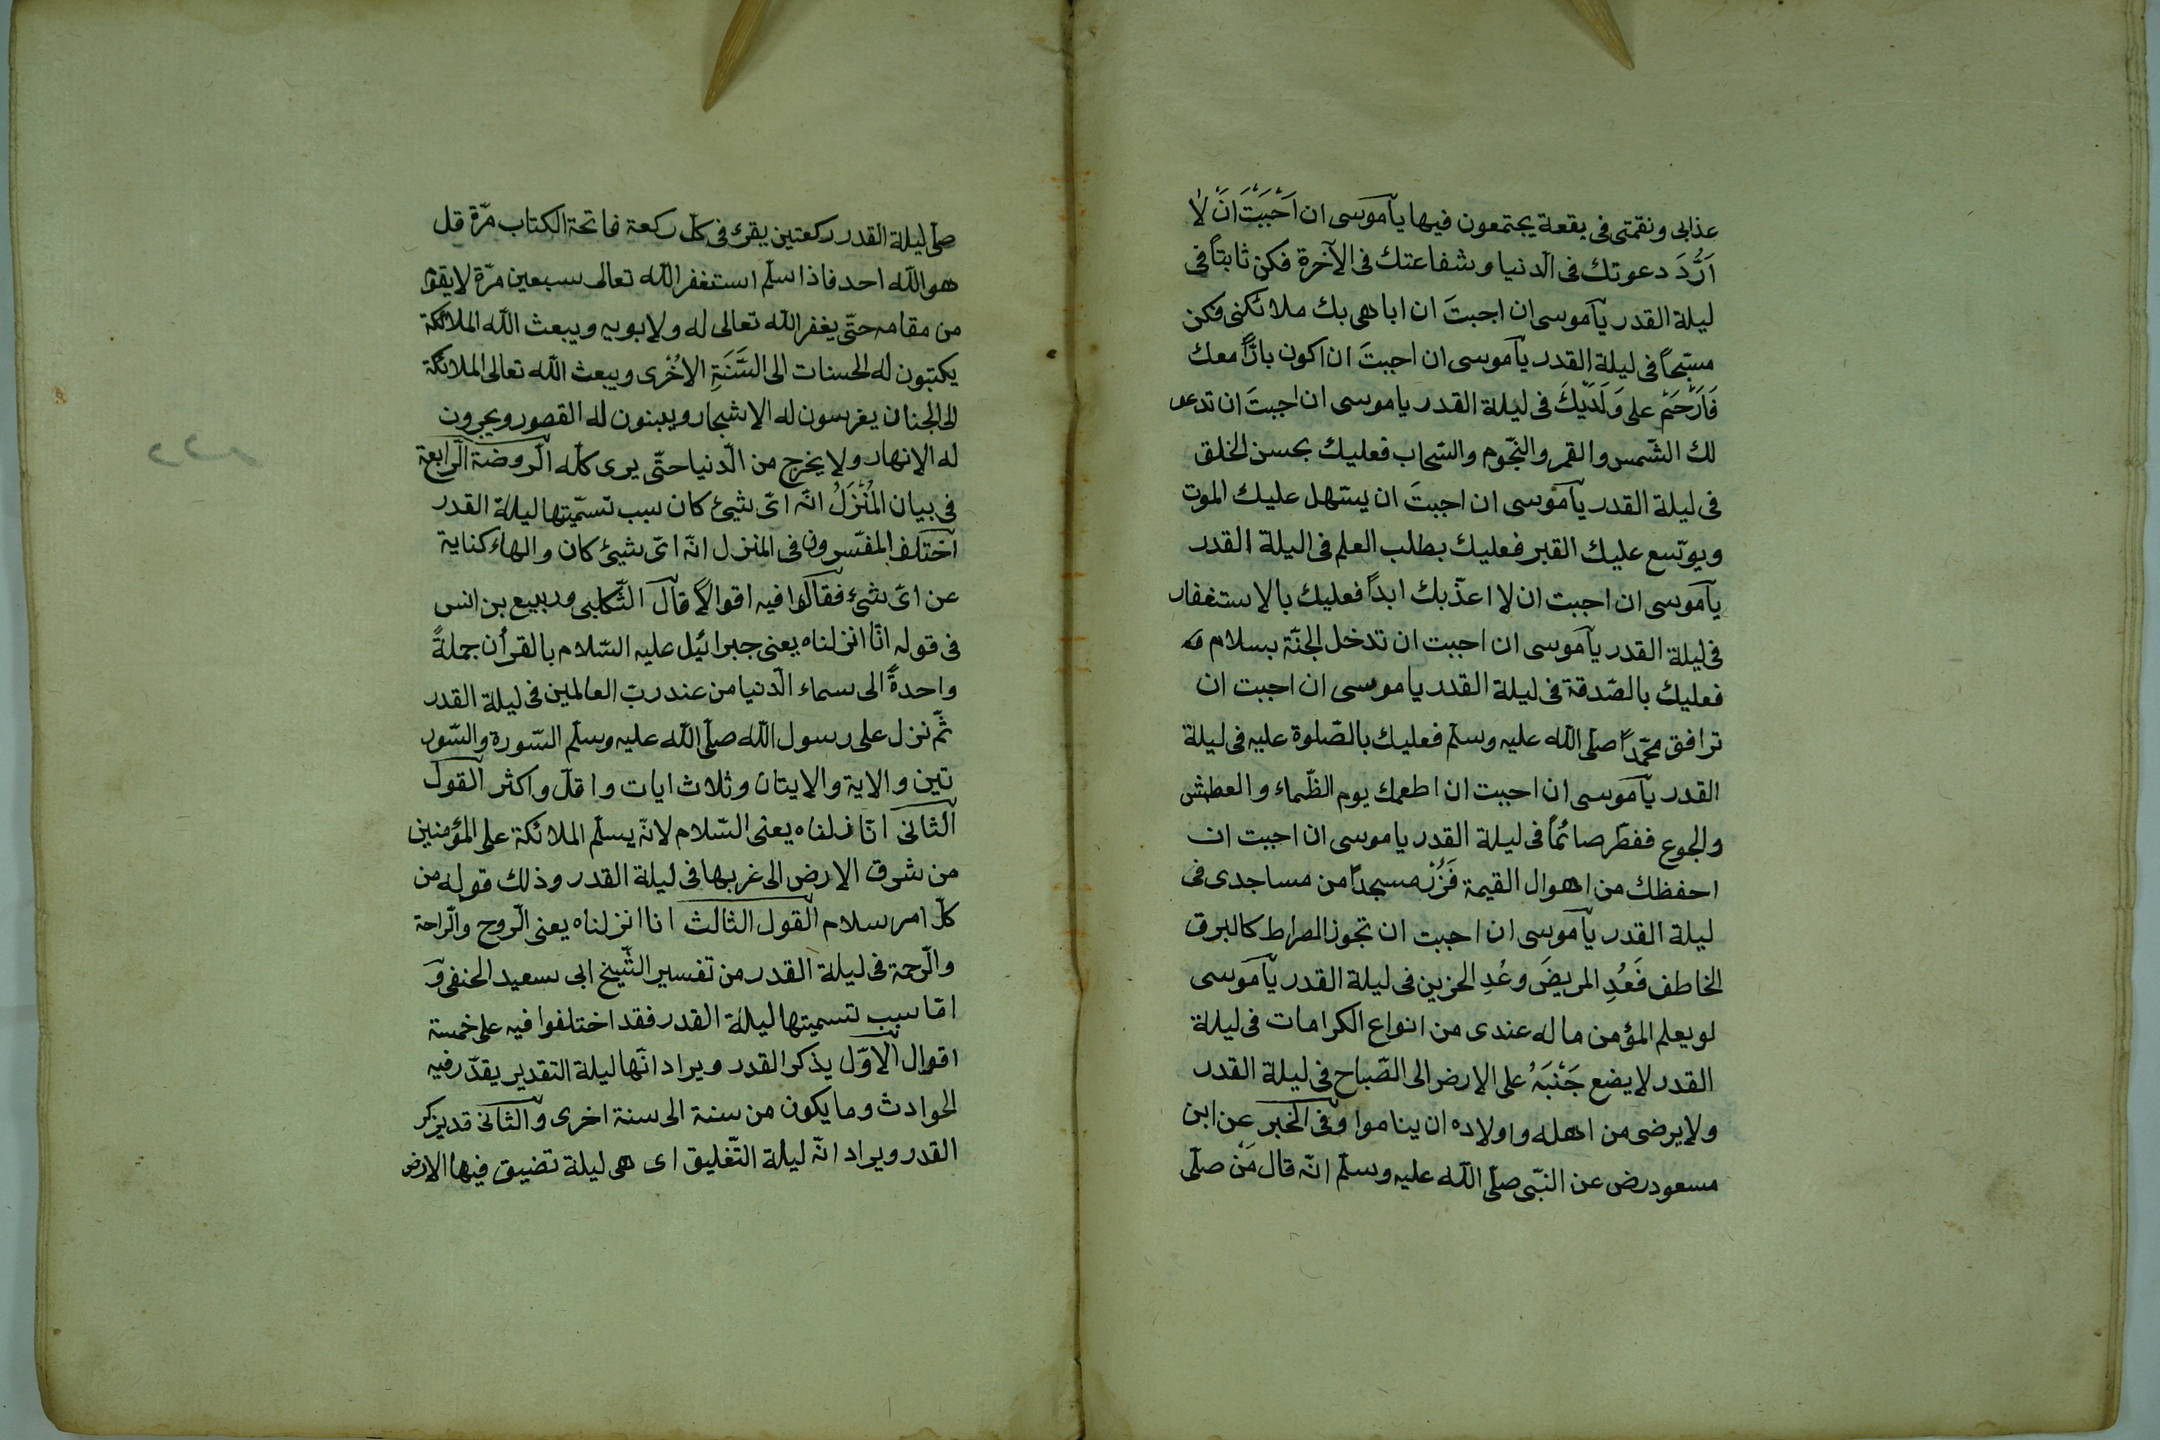 عذابى ونقمتى فى بقعة يجتمعون فيها يا موسى ان اَحْبَبْتَ انَ لا
اَرُدَّ دعوتك فى الدّنيا وشفاعتك فى الآخرة فكن ثابتاً فى
ليلة القدر يا موسى ان احببتَ ان اباهى بك ملائكتى فكن
مسبّحاً فى ليلة القدر يا موسى ان احببتَ ان اكون بارّاً معك
فَارْحَمْ على وَلَدَيْكَ فى ليلة القدر يا موسى ان احببتَ ان تدعو
لك الشّمس والقمر والنّجوم والسّحاب فعليك بحسن الخلق
فى ليلة القدر يا موسى ان احببتَ ان يسهل عليك الموت
ويوسّع عليك القبر فعليك بطلب العلم فى اليلة القدر
يا موسى ان احببت ان لا اعذّبك ابداً فعليك بالاستغفار
فى ليلة القدر يا موسى ان احببت ان تدخل الجنّة بسلام
فعليك بالصّدقة فى ليلة القدر يا موسى ان احببت ان
ترافق محمّداً صلّى الله عليه وسلّم فعليك بالصّلوة عليه فى ليلة
القدر يا موسى ان احببت ان اطعمك يوم الظّماء والعطش
والجوع ففطّر صائماً فى ليلة القدر يا موسى ان احببت ان
احفظك من اهوال القيمة فَزُرْ مسجداً من مساجدى فى
ليلة القدر يا موسى ان احببت ان تجوز الصراط كالبرق
الخاطف فَعُدِ المريضَ وعُدِ الحزين فى ليلة القدر يا موسى
لو يعلم المؤمن ما له عندى من انواع الكرامات فى ليلة
القدر لا يضع جَنْبَهُ على الارض الى الصّباح فى ليلة القدر
ولا يرضى من اهله واولاده ان يناموا وفى الخبر عن ابن
مسعود رض عن النبّى صلّى الله عليه وسلّم انّه قال مَنْ صلّى
صلّى ليلة القدر ركعتين يقرئ فى كلّ ركعة فاتحة الكتاب مرّة قل
هو الله احد فاذا سلّم استغفر الله تعالى سبعين مرّة لا يقو
من مقامه حتّى يغفر الله تعالى له ولابويه ويبعث الله الملائكة
يكتبون له الحسنات الى السَّنَةِ الاُخْرى ويبعث الله تعالى الملائكة
الى الجنان يغرسون له الاشجار ويبنون له القصور ويجرون
له الانهار ولا يخرج من الدّنيا حتّى يرى كلّه الرّوضة الرّابعة
فى بيان المُنْزَلُ انّه اىّ شيئ كان سبب تسمّيتها ليلة القدر
اختلف المفسّرون فى المنزل انّه اىّ شيئ كان والهاء كناية
عن اىّ شئ فقالوا فيه اقوالاً قال الكلبى وربيع بن انس
فى قوله انّا انزلناه يعنى جبرائيل عليه السّلام بالقرأن جملةً
واحدةً الى سماء الدّنيا من عند ربّ العالمين فى ليلة القدر
ثمّ نزل على رسول الله صلّى الله عليه وسلّم السّورة والسّور
تين والاية والايتان وثلاث ايات واقلّ واكثر القول
الثّانى انّا انزلناه يعنى السّلام لانّه يسلّم الملائكة على المؤمنين
من شرق الارض الى غربها فى ليلة القدر وذلك قوله من
كلّ امر سلام القول الثالث انا انزلناه يعنى الرّوح والرّاحة
والرّحمة فى ليلة القدر من تفسير الشّيخ ابى سعيد الحنفى و
امّا سبب تسميتها ليلة القدر فقد اختلفوا فيه على خمسة
اقوال الاوّل يذكر القدر ويراد انّها ليلة التقدير يقدّر فيه
الحوادث وما يكون من سنة الى سنة اخرى والثّانى قد يذكر
القدر ويراد انّه ليلة التّغليق اى هى ليلة تضيق فيها الارض